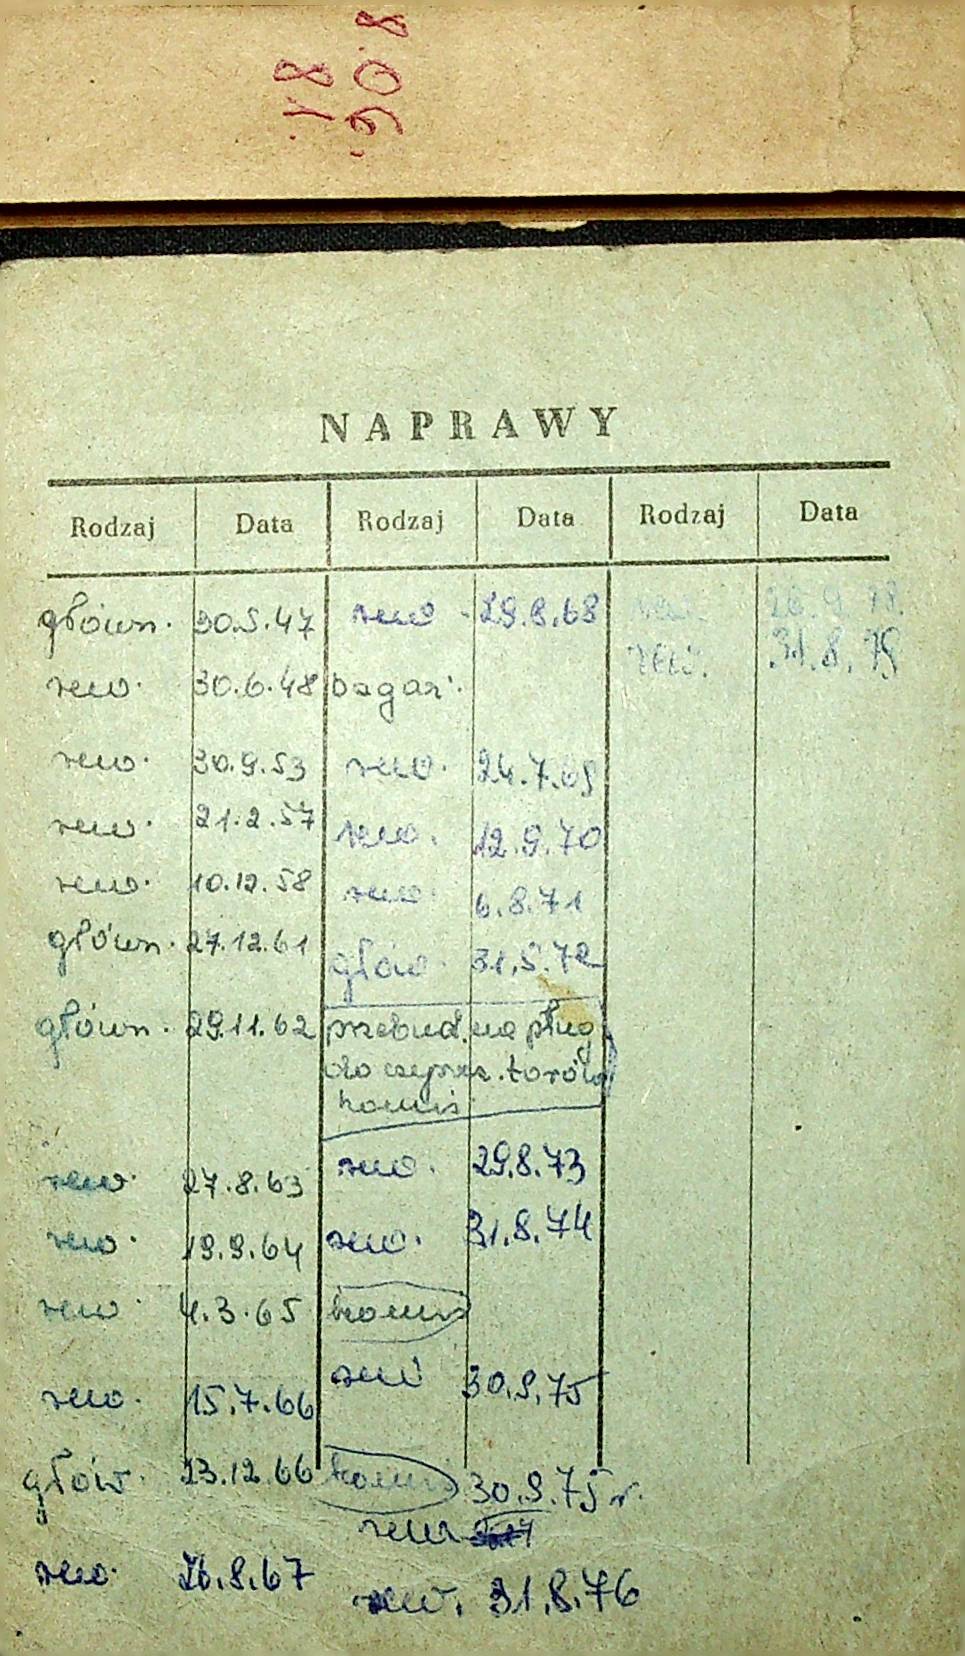 18
908
NAPRAWY
Rodzaj Data Rodzaj Data Rodzaj Data
główn. 30.5.47
rew. 30.6.48
rew. 30.9.53
rew. 21.2.57
rew. 10.12.58
główn. 27.12.61
główn. 29.11.62
rew. 27.8.63
rew. 19.9.64
rew. 4.3.65
rew. 15.7.66
główn. 23.12.66
rew. 26.8.67
rew. 29.8.68
bagaż.
rew. 24.7.69
rew. 12.9.70
rew. 6.8.71
główn. 31.5.72
przebud. na pług
do czyszcz. torów
komis
rew. 29.8.73
rew. 31.8.74
komis
rew 30.9.75
komis 30.9.75 r.
rew
rew. 31.8.76
rew. 26.9.78.
rew. 31.8.79